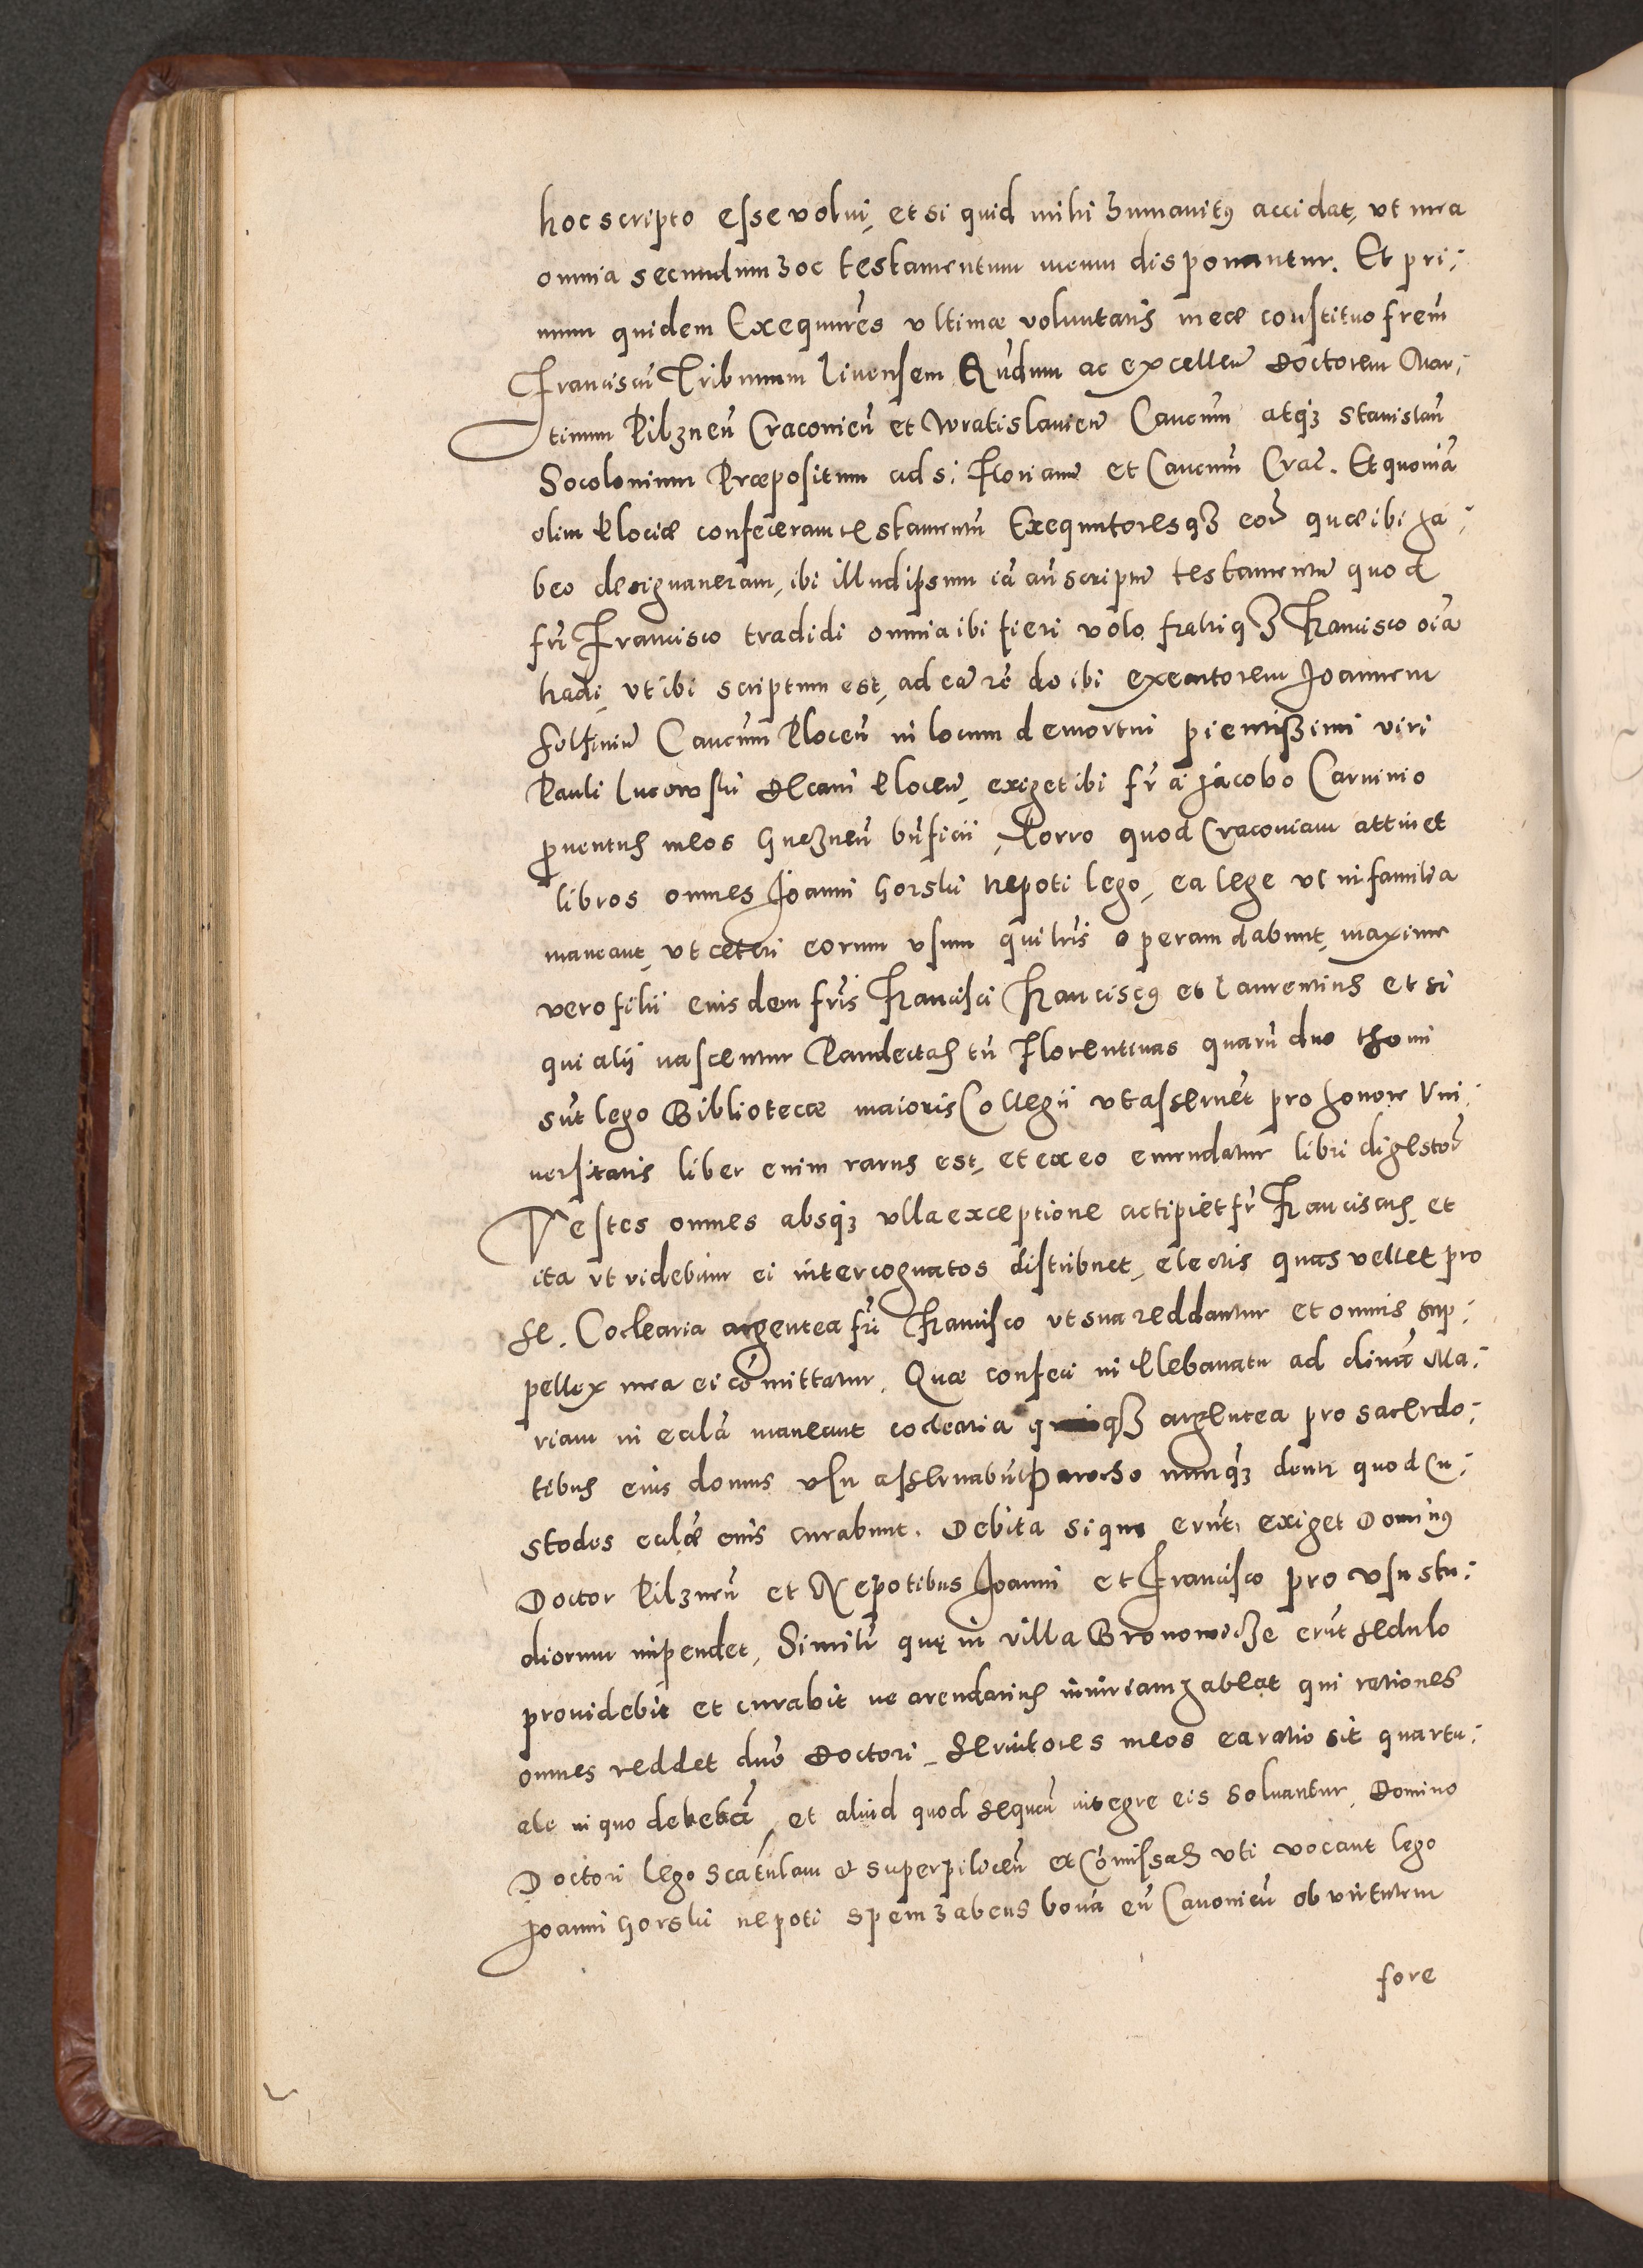 hoc scripto esse volui, et si quid mihi humanitus accidat, ut mea
omnia secundum hoc testamentum meum disponantur. Et pri:
mum quidem Exequutores ultimae voluntatis meae constituo frēm
Franciscū Tribunum Livensem Rn̄dum ac excellen̄ Doctorem Mar:
tinum Pilznen̄ Cracovien̄ et Wratislavien̄ Canc̄um atq; Stanislaū
Socolovium Praepositum ad S. Florianū et Canc̄um Crac̄. Et quoniā
olim Plociae confeceram testamentū Exequutoresq; eor̄ quae ibi ha:
beo designaveram, ibi illud ipsum iā an̄ scriptū testamentū quod
fr̄i Francisco tradidi omnia ibi fieri volo fratriq; Francisco oīa
tradi, ut ibi scriptum est, ad eā rē do ibi executorem Joannem
Canc̄um Plocen̄ in locum demortui pientissimi viri
Pauli Lucowski Decani Plocen̄, exiget ibi fr̄ a Jacobo Carninio
proventus meos Gneznen̄ bn̄ficii, Porro quod Cracoviam attinet
libros omnes Joanni Gorski nepoti lego, ea lege ut in familia
maneant, ut ceteri eorum usum qui lr̄is operam dabunt, maxime
vero filii eiusdem fr̄is Francisci Franciscus et Laurentius et si
qui alii nascentur Pandectas tn̄ Florentinas quarū duo thomi
sūt lego Bibliotecae maioris Collegii ut asservet pro honore Uni:
versitatis liber enim rarus est, et ex eo emendatur libri digestor̄
Vestes omnes absq; ulla exceptione accipiet fr̄ Franciscus, et
ita ut videbitur ei inter cognatos distribuet, electis quas vellet pro
se. Coclearia argentea fr̄i Francisco ut sua reddantur et omnis sup:
pellex mea ei cōmittatur. Quae confeci in Plebanatu ad divā Ma:
riam in ecclā maneant coclearia q; argentea pro sacerdo:
tibus eius domus usu asservabūt Parocho nunq; dentr̄ quod Cu:
stodes ecclae eius curabunt. Debita si qua erūt, exiget Dominus
Doctor Pilznen̄ et Nepotibus Joanni et Francisco pro usu stu:
diorum impendet, Similr̄ quę in villa Bronowicze erūt sedulo
providebit et curabit ne arendarius iniuriam habeat qui rationes
omnes reddet dn̄o Doctori, Servitores meos ea ratio sit quartu:
ale in quo debebā, et aliud quod sequen̄ integre eis solvantur, Domino
Doctori lego scatulam et superpiliceū et Cōmissas uti vocant lego
Joanni Gorski nepoti spem habens bonā eū Canonicū ob virtutem
fore